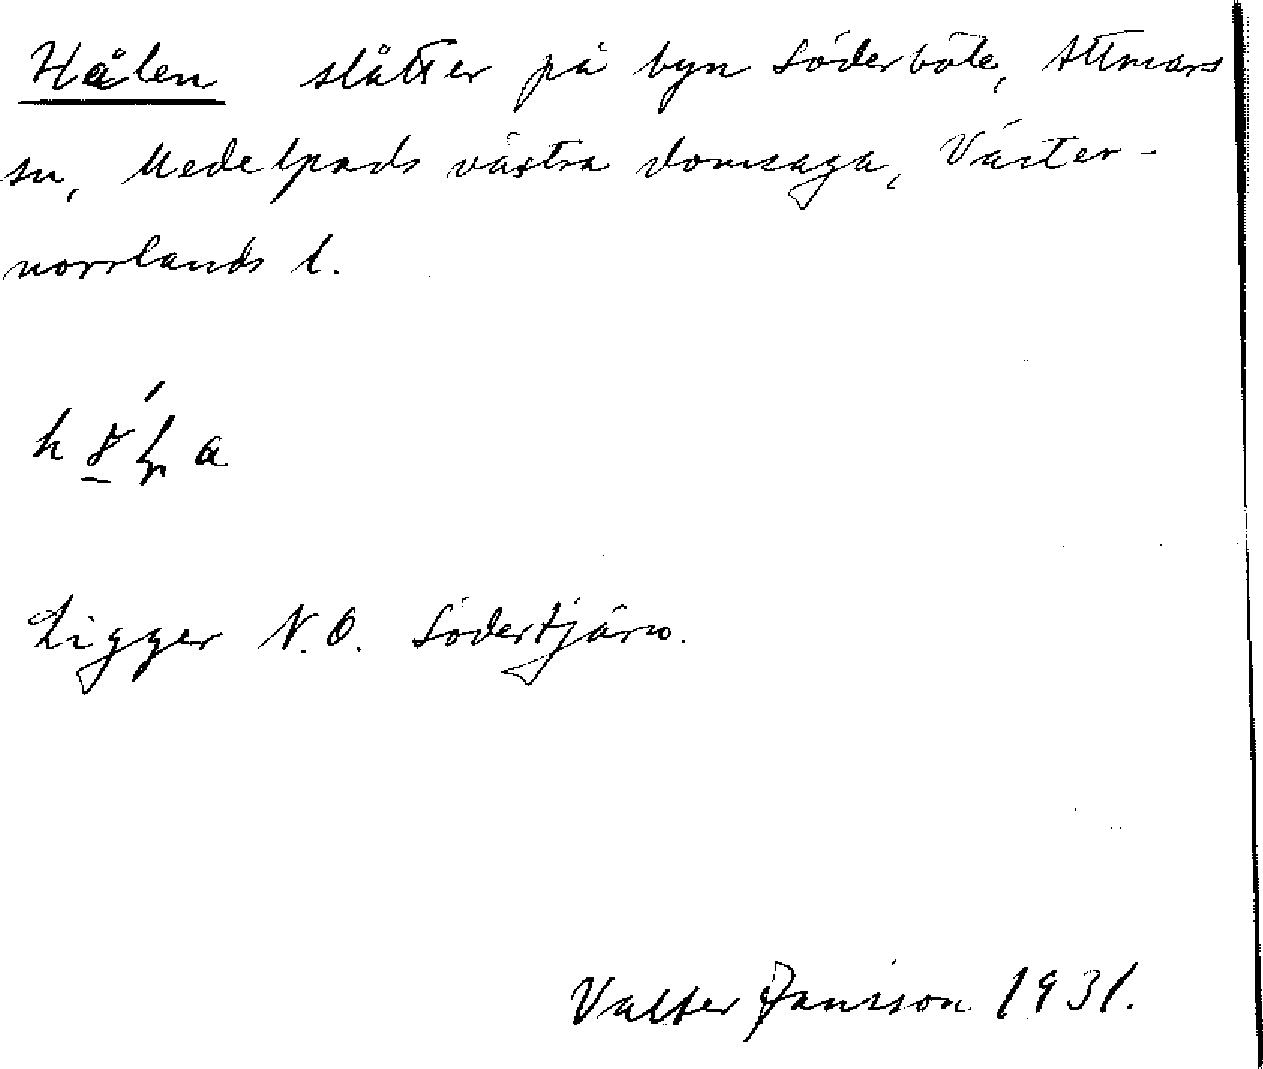 Hålen slåtter på byn Söderböle, Attmars
sn, Medelpads västra domsaga, Väster-
norrlands l.
Ligger N.O. Södertjärn.
Valter Jansson 1931.